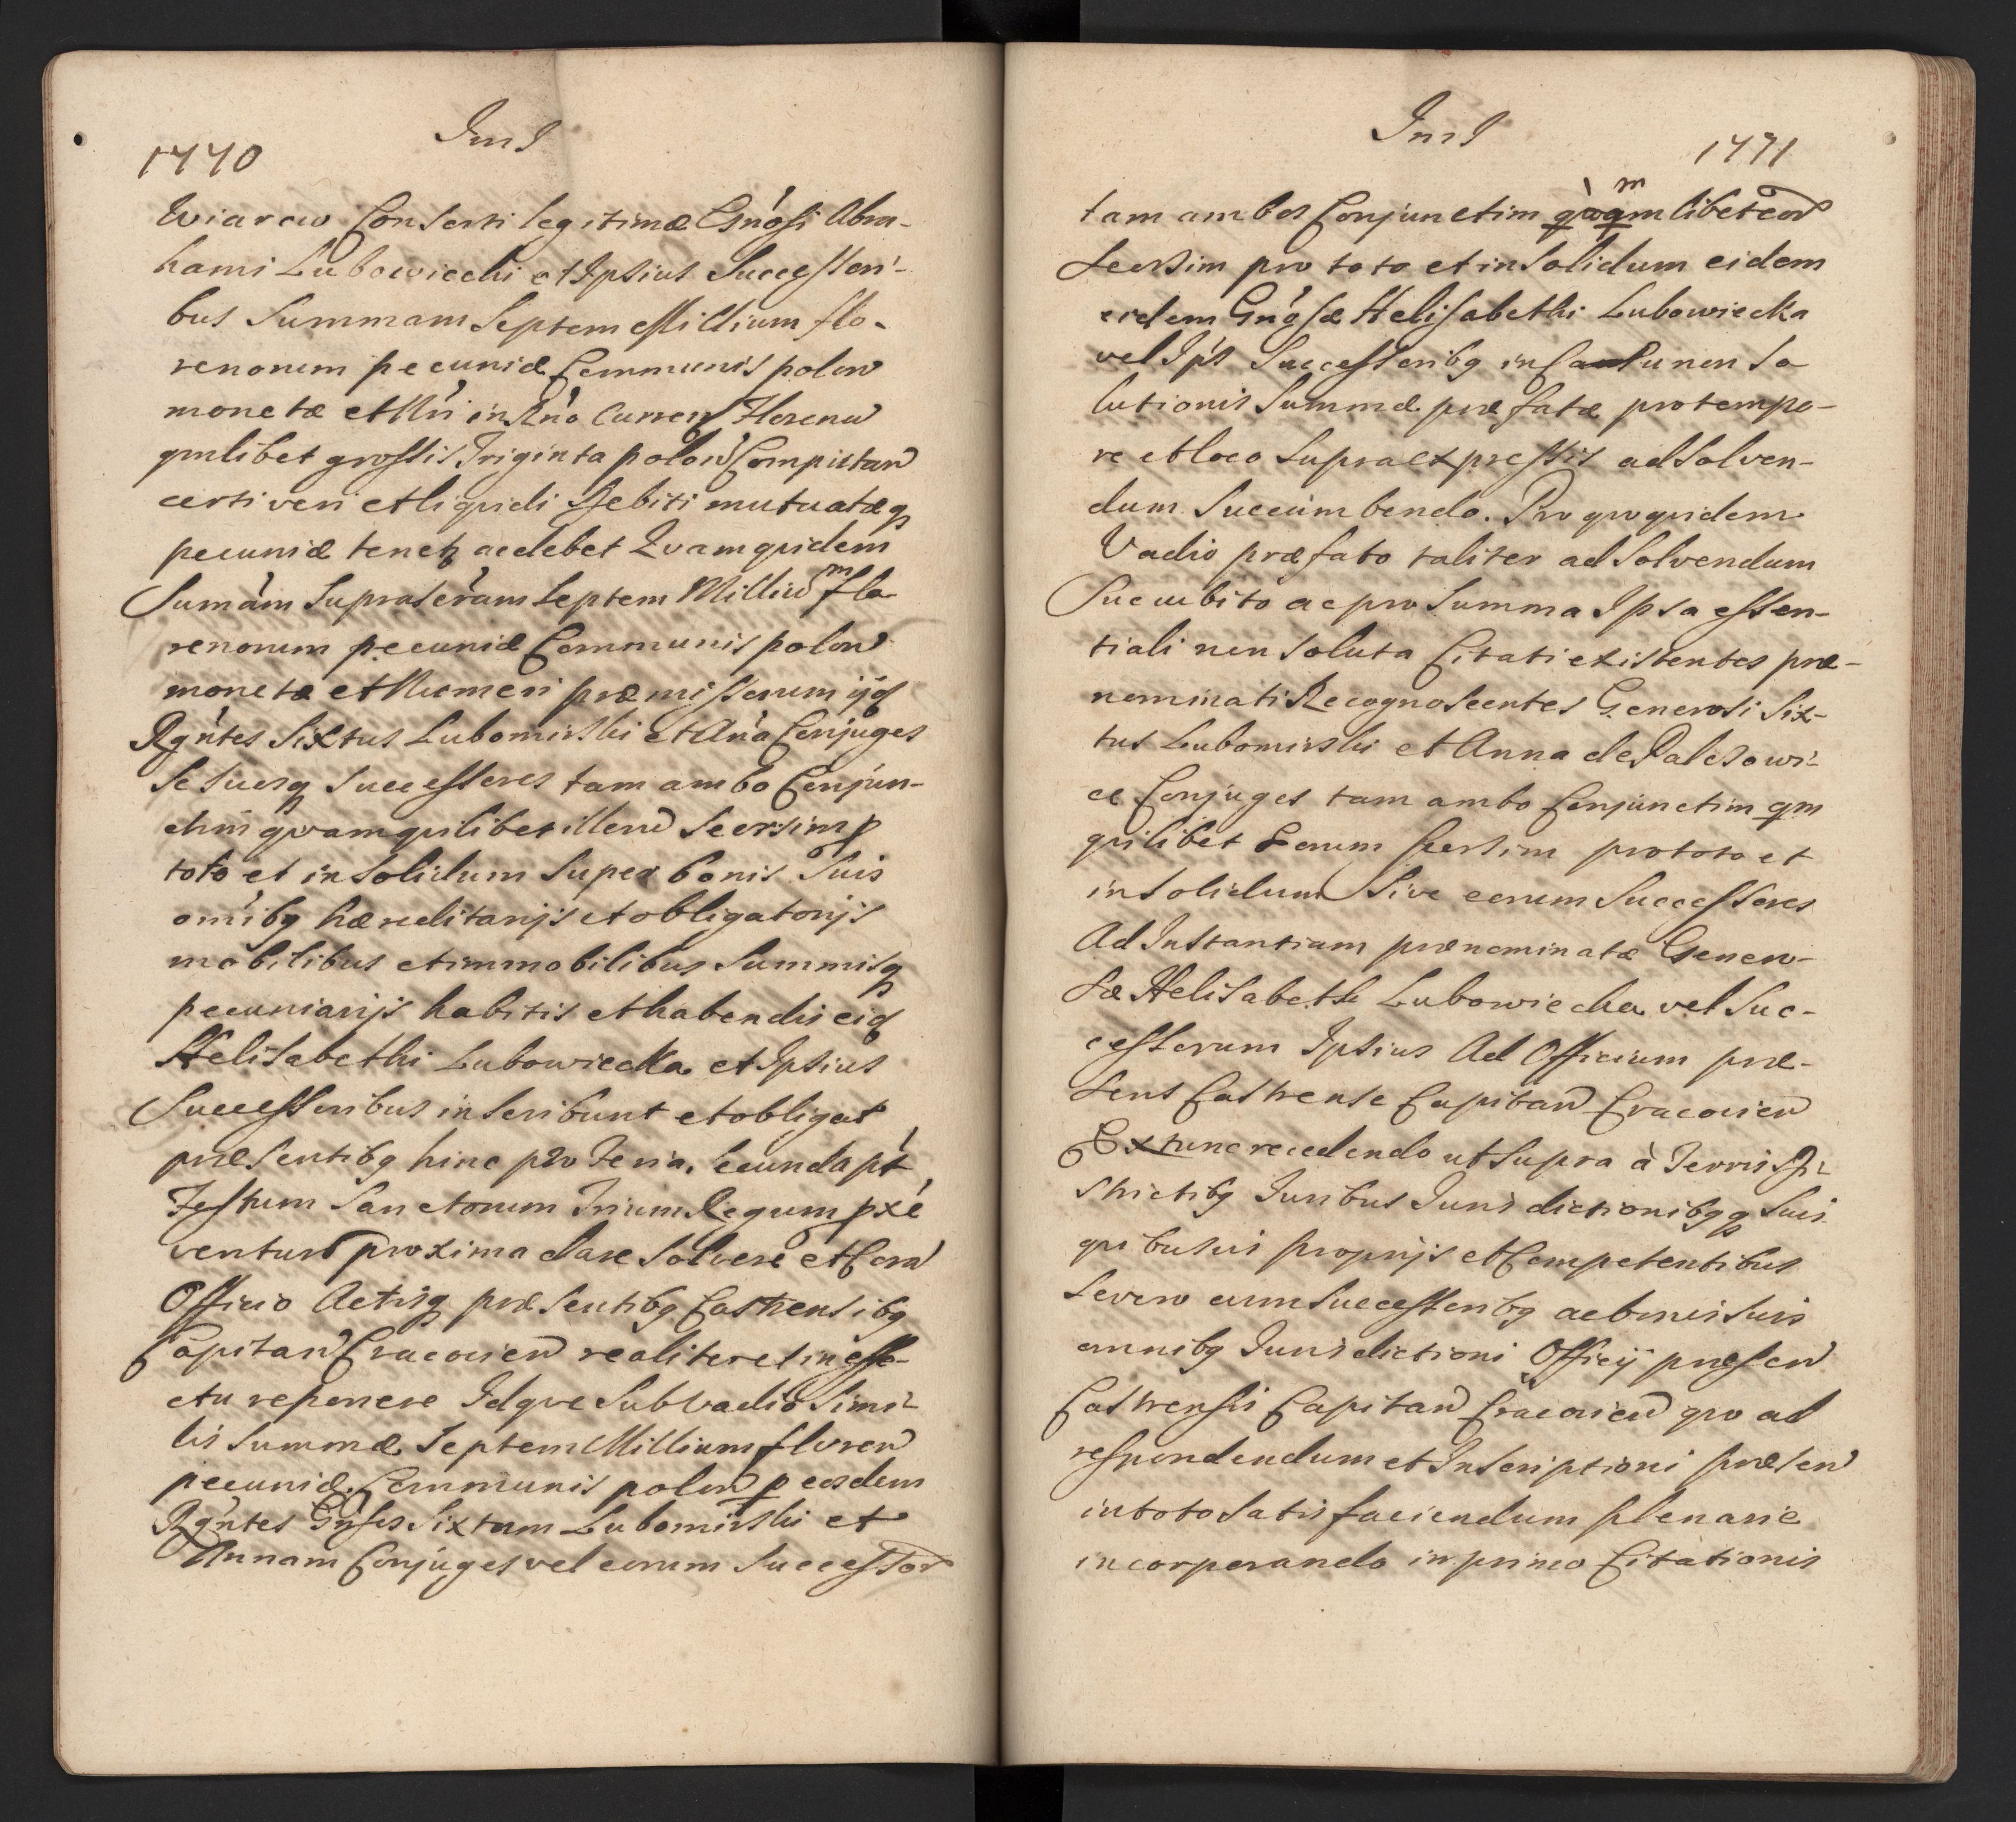 1770
Ins
Wiarcw Consorti legitimæ Gn̄osi Abra-
hami Lubowiecki et Ipsius Successori-
bus Summam Septem Millium flo-
renorum pecuniæ Communis polon
monetæ et Nri in Rn̄o Curren Florenu
qmlibet grossis Triginta polon Computan
certi veri et liquidi Debiti mutuatæq
pecuniæ tenetz ac debet Quamquidem
Sumam Suprascram Septem Milliu m flo
renorum pecuniæ Communis polon
monetæ et Numeri præmissorum ijd
Rgntes Sixtus Lubomirski et Ana Conjuges
Se Suosq Successores tam ambo Conjun-
ctim quam quilibet illorum Seorsim p
toto et in Solidum Super bonis Suis
omibq hæreditarijs et obligatorijs
mobilibus et immobilibus Summisq
pecuniarijs habitis et habendis eid
Helisabethi Lubowiecka et Ipsius
Successoribus inscribunt et obligat
præsentibq hinc pro Feria Secunda pt
Festum Sanctorum Trium Regum pxe
ventura proxima dare Solvere et Cora
Officio Actisq præsentibq Castrensibq
Capitan Cracovien realiter et in effe-
ctu reponere Idque Sub Vadio Simi-
lis Summæ Septem Millium floren
pecuniæ Communis polon p eosdem
Rgntes Gnsos Sixtum Lubomirski et
Annam Conjuges vel eorum Successor
Ins
1771
tam ambos Conjunctim qm libet eor
Seorsim pro toto et in Solidum eidem
eidem Gnosæ Helisabethi Lubowiecka
vel Ips Successoribq in Casu non So
lutionis Summæ præfatæ pro tempo-
re et loco Supra expressis ad Solven-
dum Succumbendo. Pro quo quidem
Vadio præfato taliter ad Solvendum
Succubito ac pro Summa Ipsa essen-
tiali non Soluta Citati existentes præ-
nominati Recognoscentes Generosi Six-
tus Lubomirski et Anna de Palczowi-
ce Conjuges tam ambo Conjunctim qm
quilibet Eorum Seorsim pro toto et
in Solidum Sive eorum Successores
Ad Instantiam prænominatæ Genero-
sæ Helisabeth Lubowiecka vel Suc-
cessorum Ipsius Ad Officium præ-
sens Castrense Capitan Cracovien
Ex tunc recedendo ut Supra à Terris Di
strictibq Iuribus Iurisdictionibqq Suis
quibusvis proprijs et Competentibus
Se vero cum Successoribq ac bonis Suis
omnibq Iurisdictioni Officij præsen
Castrensis Capitan Cracovien quo ad
respondendum et Inscriptioni præsen
in toto Satisfaciendum plenarie
incorporando in primo Citationis